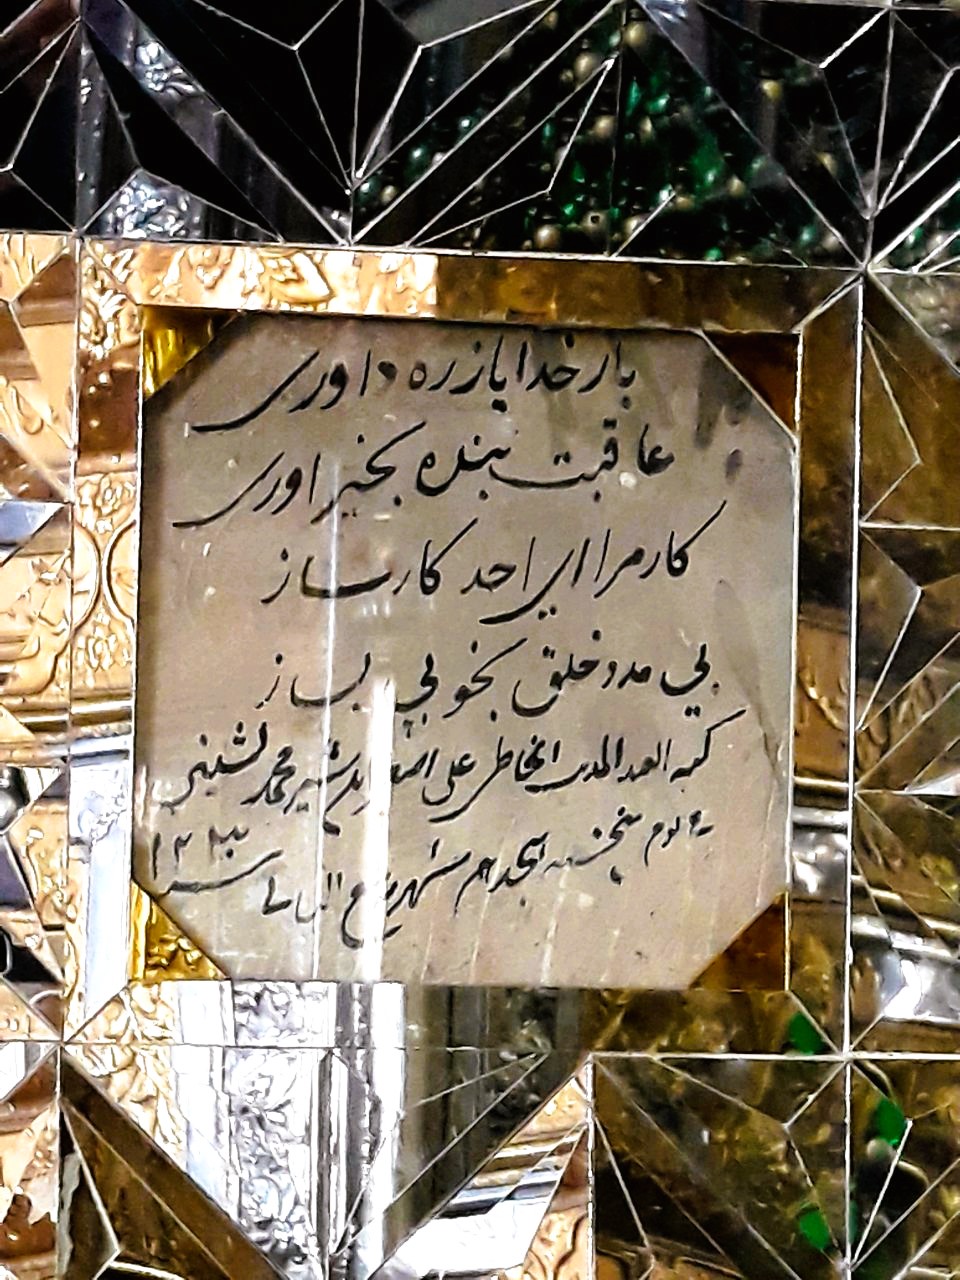 بار خدایا ز ره داوری
عاقبت بنده بخیر اوری
کار مرا ای احد کارساز
بی مدد خلق بخوبی بساز
کتبه العبد المذنب الخاطی علی اصغر محمد
یوم پنجشنبه هیجدهم شهر ربیع الثانی سنه